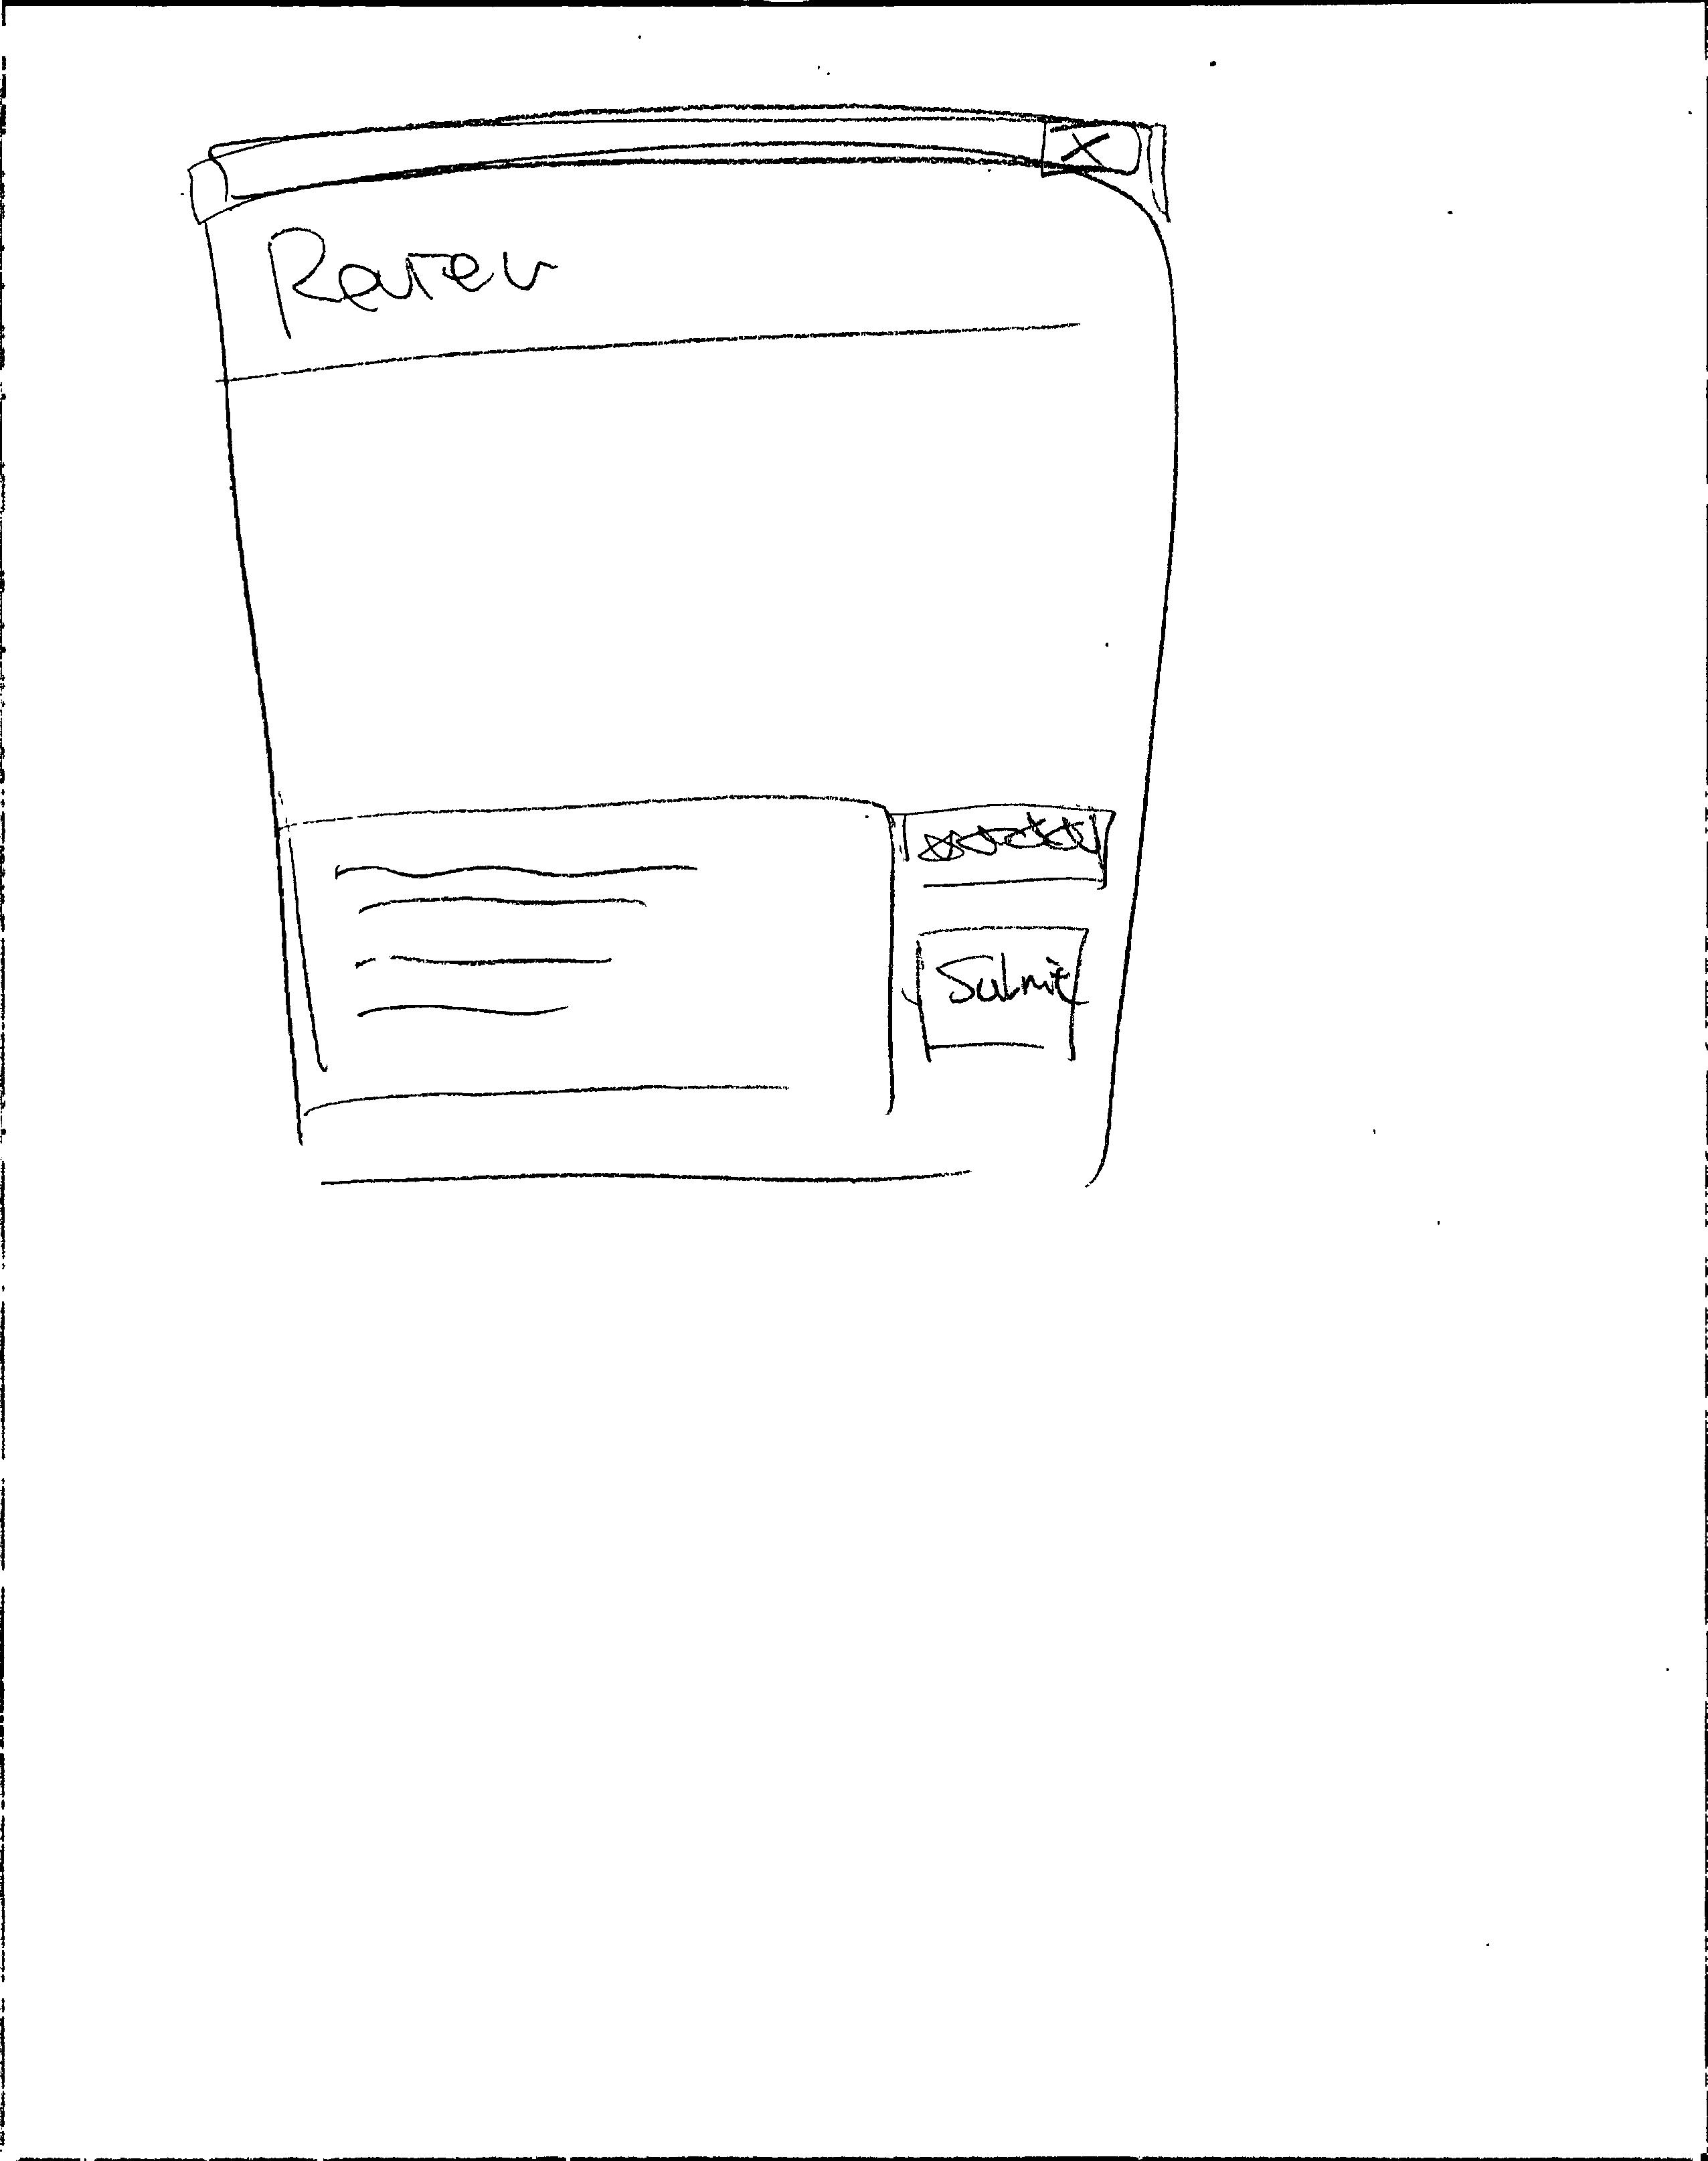 X
Review
Submit